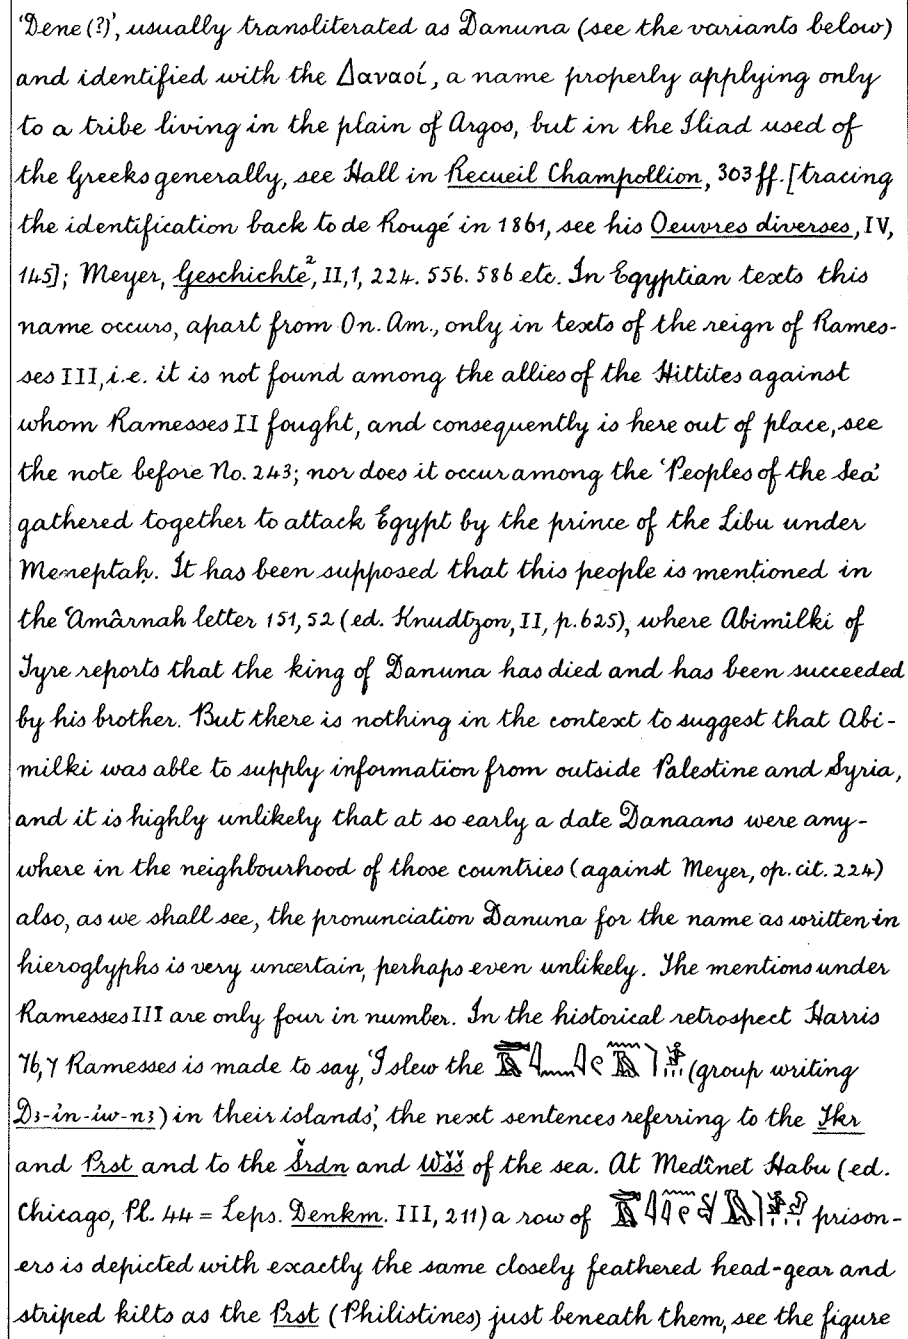 'Dene (?)', usually transliterated as Danuna (see the variants below)
and identified with the Δαναοί, a name properly applying only
to a tribe living in the plain of Argos, but in the Iliad used of
the Greeks generally, see Hall in Recueil Champollion, 303 ff. [tracing
the identification back to de Rougé in 1861, see his Oeuvres diverses, IV,
145]; Meyer, Geschichte², II, 1, 224. 556. 586 etc. In Egyptian texts this
name occurs, apart from On. Am., only in texts of the reign of Rames-
ses III, i.e. it is not found among the allies of the Hittites against
whom Ramesses II fought, and consequently is here out of place, see
the note before No. 243; nor does it occur among the 'Peoples of the Sea'
gathered together to attack Egypt by the prince of the Libu under
Meneptaḥ. It has been supposed that this people is mentioned in
the 'Amârnah letter 151, 52 (ed. Knudtzon, II, p. 625), where Abimilki of
Tyre reports that the king of Danuna has died and has been succeeded
by his brother. But there is nothing in the context to suggest that Abi-
milki was able to supply information from outside Palestine and Syria,
and it is highly unlikely that at so early a date Danaans were any-
where in the neighbourhood of those countries (against Meyer, op. cit. 224)
also, as we shall see, the pronunciation Danuna for the name as written in
hieroglyphs is very uncertain, perhaps even unlikely. The mentions under
Ramesses III are only four in number. In the historical retrospect Harris
76, 7 Ramesses is made to say, 'I slew the (group writing
Dꜣ-in-iw-nꜣ) in their islands', the next sentences referring to the Ṯkr
and Prst and to the Šrdn and Wšš of the sea. At Medînet Habu (ed.
Chicago, Pl. 44 = Leps. Denkm. III, 211) a row of prison-
ers is depicted with exactly the same closely feathered head-gear and
striped kilts as the Prst (Philistines) just beneath them, see the figure